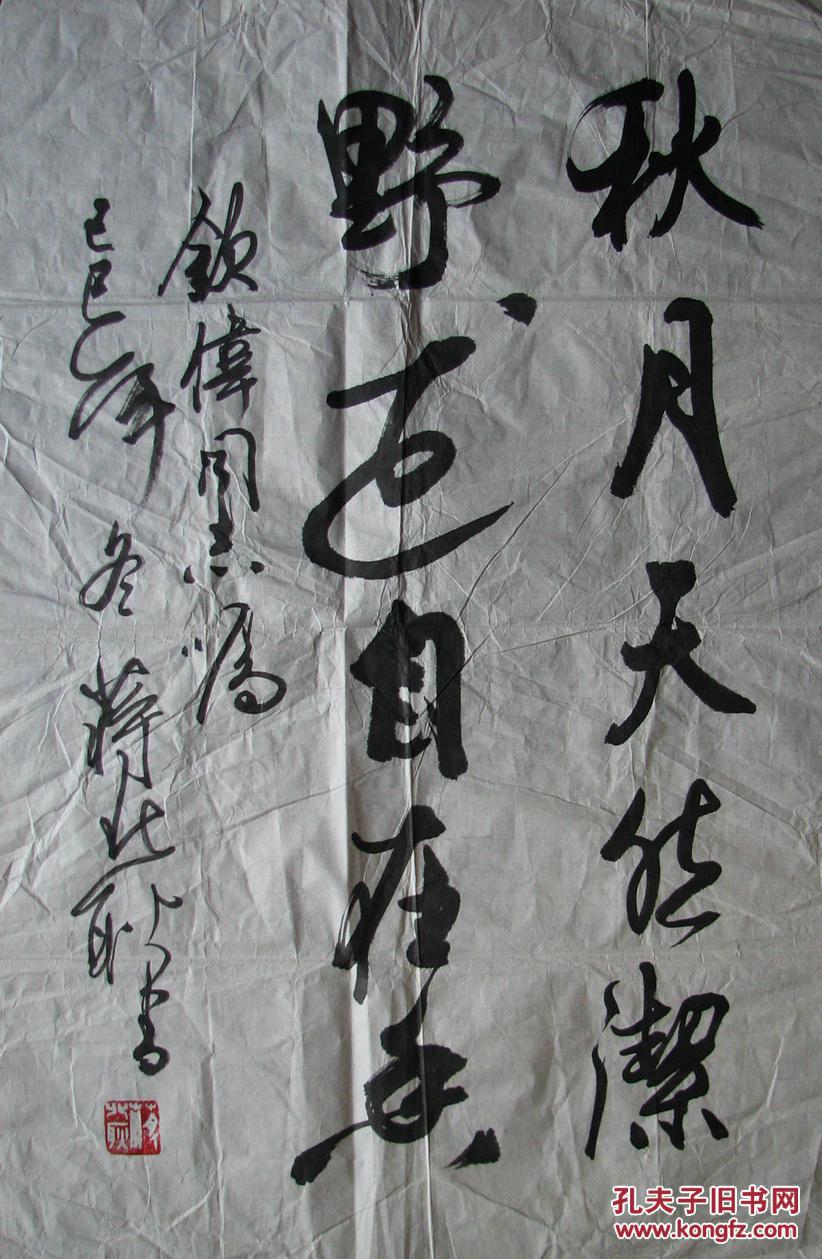 秋月天然潔
野花自在香
欽偉同志囑
己巳年冬 蔣北耿書
孔夫子旧书网
www.kongfz.com